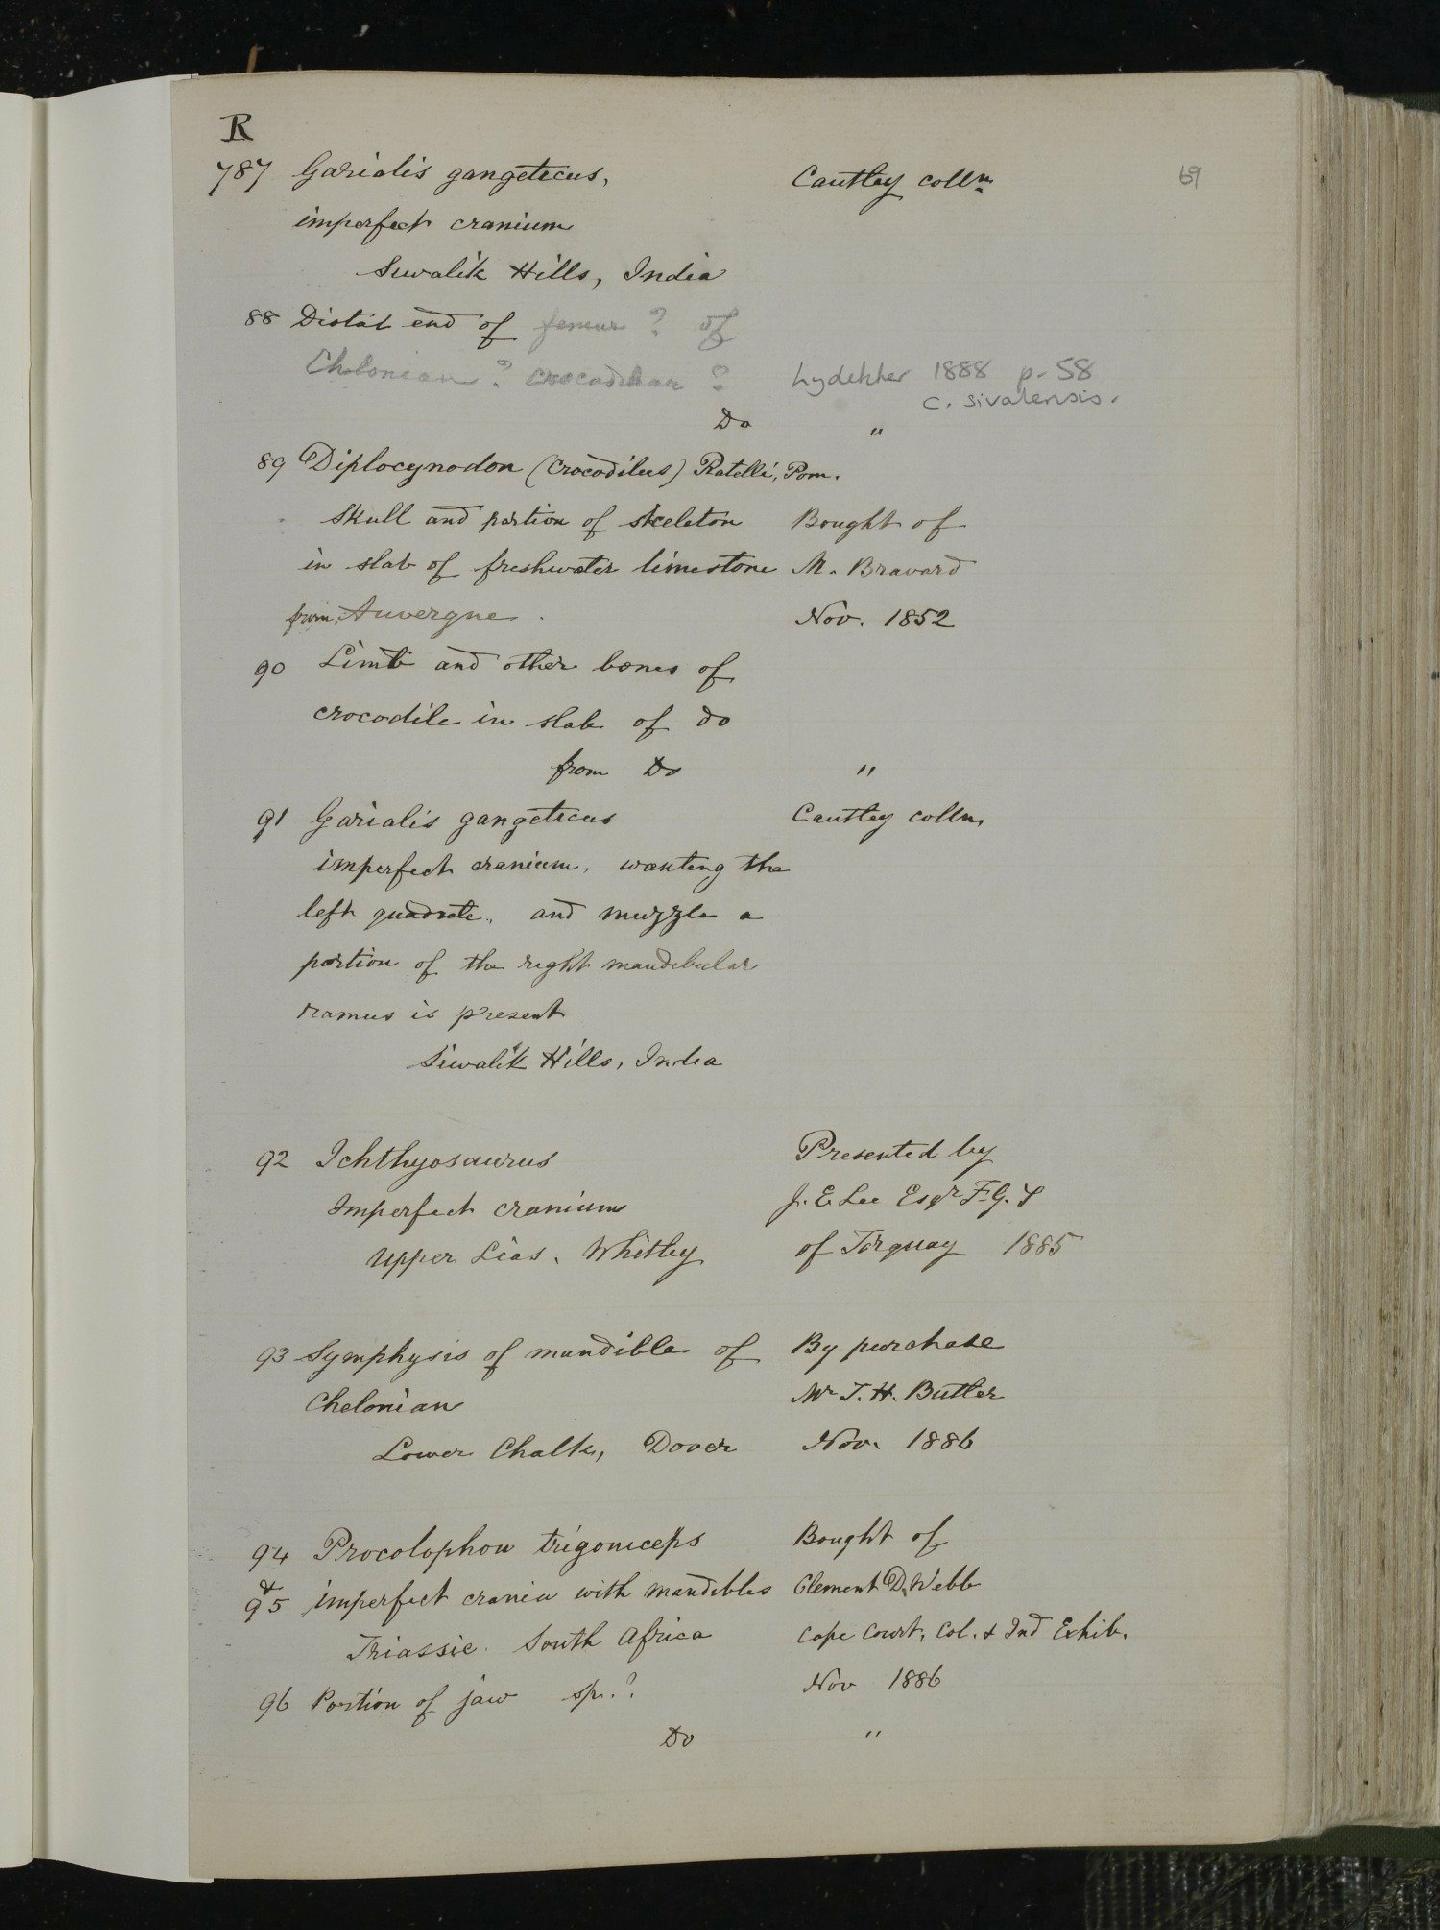 R
69
787 Garialis gangeticus, Cautley colln
imperfect cranium
Siwalik Hills, India
88 Distal end of femur ? of
Chelonian ? crocodilian ? Lydekker 1888 p. 58
C. sivalensis.
Do "
89 Diplocynodon (Crocodilus) Ratelli, Pom.
Skull and portion of skeleton Bought of
in slab of freshwater limestone M. Bravard
from Auvergne. Nov. 1852
90 Limb and other bones of
crocodile in slab of do
from Do "
91 Garialis gangeticus Cautley colln,
imperfect cranium, wanting the
left quadrate, and muzzle a
portion of the right mandibular
ramus is present
Siwalik Hills, India
92 Ichthyosaurus Presented by
Imperfect cranium J. E. Lee Esqr F.G.S
Upper Lias, Whitby of Torquay 1885
93 Symphysis of mandible of By purchase
Chelonian Mr T. H. Butler
Lower Chalk, Dover Nov. 1886
94 Procolophon trigoniceps Bought of
& 95 imperfect crania with mandibles Clement D. Webb
Triassic. South Africa Cape Court, Col. & Ind Exhib.
Nov 1886
96 Portion of jaw sp. ?
Do "